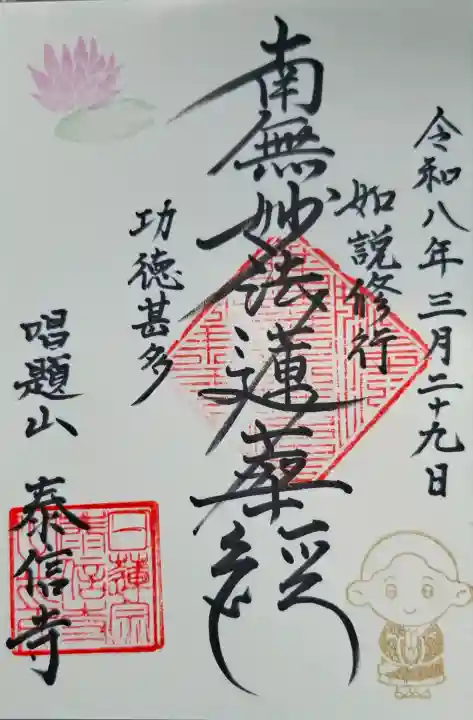 令和八年三月二十九日
如説修行
南無妙法蓮華経
功徳甚多
唱題山 泰信寺
日蓮宗